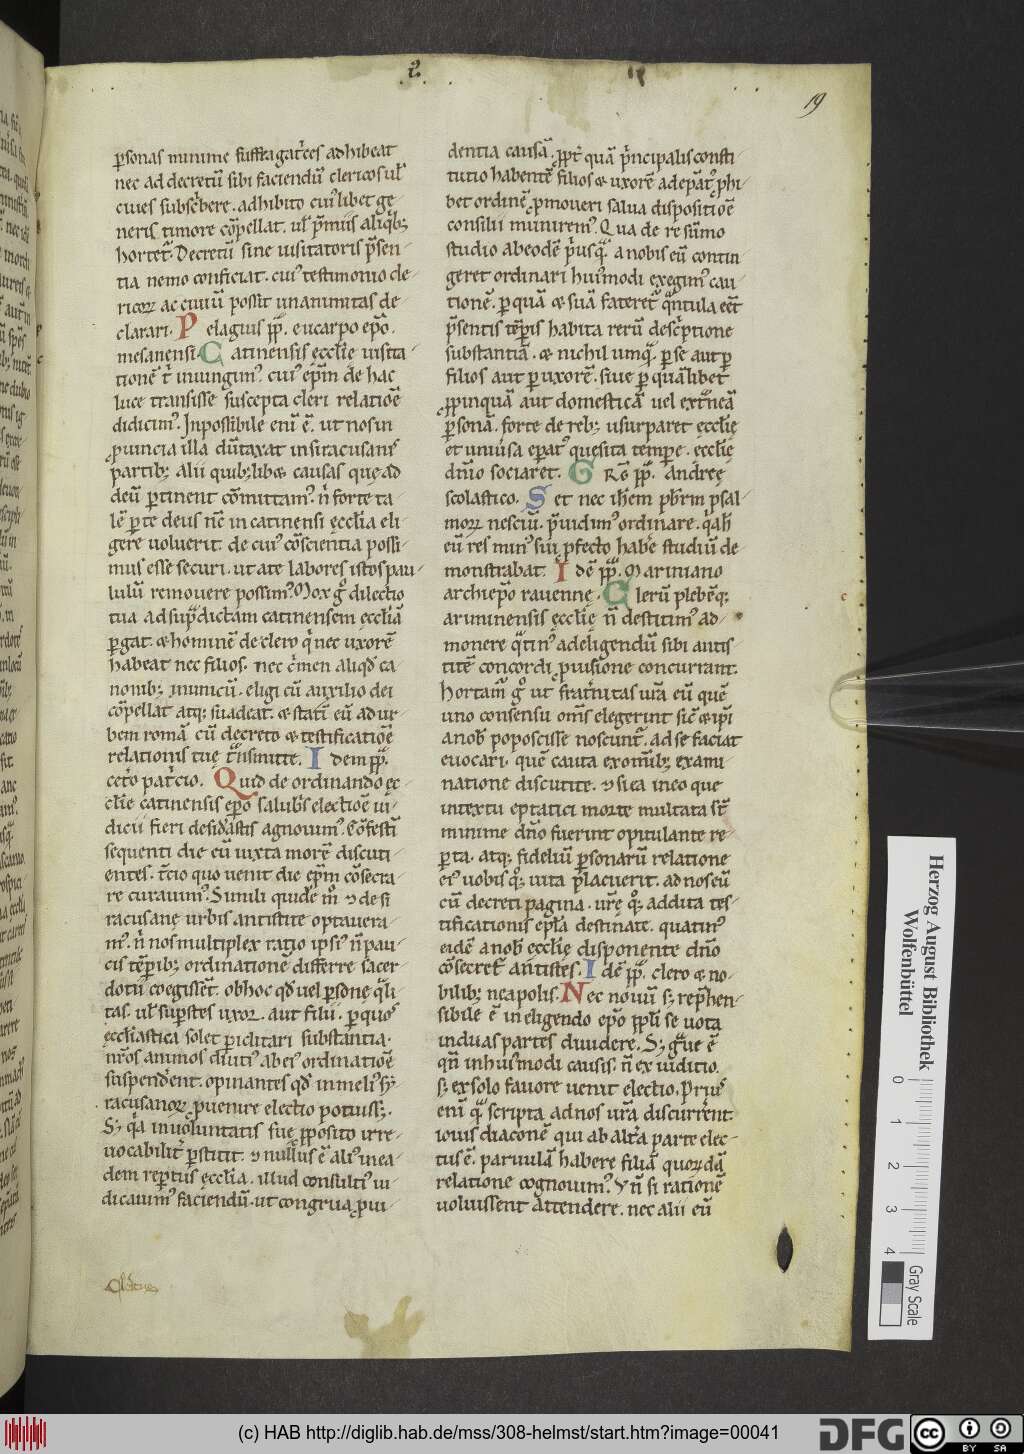 19
p̄sonas minime suffragat̄ces adhibeat
nec ad decretū sibi faciendū clericos ul̄
ciues subsc̄bere. adhibito cui᷒libet ge
neris timore cōpellat. ul̄ p̄miis aliq̄b;
hortet᷑. Decretū sine uisitatoris p̄sen
tia nemo conficiat. cui᷒ testimonio cle
ricoꝝ ac ciuiū possit unanimitas de
clarari. Pelagius pp̄. eucarpo ep̄o.
mesanensi. Catinensis ecclȩ uisita
tionē t̄ iniungim᷒. cui᷒ ep̄m de hac
luce transisse suscepta cleri relatiōe
didicim᷒. Inpossibile enī ē. ut nos in
ꝓuincia illa dūtaxat in siracusanis
partib; alii quib;libꝫ causas quȩ ad
deū ꝑtinent cōmittam᷒. n̄ forte ta
lē ꝑ te deus nc̄ in catinensi ecclīa eli
gere uoluerit. de cui᷒ cōscientia possi
mus esse securi. ut a te labores istos pau
lulū remouere possim᷒. Mox g̊ dilectio
tua ad sup̄dictam catinensem ecclīā
ꝑgat. & hominē de clero q̄ nec uxorē
habeat nec filios. nec c̄men aliqd̄ ca
nonib; inimicū. eligi cū auxilio dei
cōpellat atq; suadeat. & statī eū ad ur
bem romā cū decreto & testificatiōe
relationis tuȩ t̄nsmitte. Idem pp̄.
cet̄o pat̄cio. Quid de ordinando ec
clīe catinensis ep̄o salub̄s electiōe iu
dicii fieri desid̄astis agnouim᷒. Cōfestī
sequenti die cū iuxta morē discuti
entes. t̄cio quo uenit die ep̄m cōsecra
re curauim᷒. Simili quidē m̊ & de si
racusanȩ urbis antistite optauera
m᷒. n̄ nos multiplex ratio ipsi᷒ n̄ pau
cis tēꝑib; ordinationē differre sacer
dotū coegisset. ob hoc qd̄ uel ꝑsonȩ q̄li
tas. ul̄ suꝑstes uxor. aut filii. ꝑ quos
ecclīastica solet ꝑiclitari substantia.
nr̄os animos diuti᷒ ab ei᷒ ordinatiōe
suspend̄ent. opinantes qd̄ in meli᷒ sy
racusanoꝝ ꝓuenire electio potuiss;.
S; q̄a in uoluntatis suȩ ꝓposito irre
uocabilit̄ ꝑstitit. & nullus ē ali᷒ in ea
dem reꝑtus ecclīa. illud consulti᷒ iu
dicauim᷒ faciendū. ut congrua ꝓui
dentia causā. ꝓpt̄ quā p̄ncipalis consti
tutio habentē filios & uxorē ad ep̄at᷒ ꝓhi
bet ordinē ꝓmoueri salua dispositiōe
consilii munirem᷒. Qua de re sūmo
studio ab eodē p̄usq̄ a nobis eū contin
geret ordinari hui᷒modi exegim᷒ cau
tionē. ꝑ quā & suā fateret᷑ q̄ntula eēt
p̄sentis tēꝑis habita rerū desc̄ptione
substantiā. & nichil umq̄ ꝑ se aut ꝑ
filios aut ꝑ uxorē. siue ꝑ quālibet
ꝓpinquā aut domesticā uel ext̄neā
ꝑsonā. forte de reb; usurparet ecclȩ
et uniūsa ep̄at᷒ quesita tempore. ecclȩ
dn̄io sociaret. Greḡ pp̄. andreȩ
scolastico. Set nec ih̄em p̄brm psal
moꝝ nesciū. p̄uidim᷒ ordinare. q̄a h̄
eū res min᷒ sui ꝓfecto habe studiū de
monstrabat. Idē pp̄. Mariniano
archiep̄o rauenne. Clerū plebēq;
ariminensis ecclȩ n̄ destitim᷒ ad
monere q̄tin᷒ ad eligendū sibi antis
titē concordi ꝓuisione concurrant.
hortam᷒ g̊ ut frat̄nitas ur̄a eū quē
uno consensu om̄s elegerint sic̄ & ip̄i
a nob̄ poposcisse noscunt᷑. ad se faciat
euocari. quē cauta ex om̄ib; exami
natione discutite. & si ea in eo que
in textu eptatici morte multata st̄
minime dn̄o fuerint opitulante re
ꝑta. atq; fideliū ꝑsonarū relatione
ei᷒ uobis q̊; uita placuerit. ad nos eū
cū decreti pagina. ur̄ȩ q̊; addita tes
tificationis ep̄la destinate. quatin᷒
eidē a nob̄ ecclȩ disponente dn̄o
cōsecret᷑ antistes. Idē pp̄. clero & no
bilib; neapolis. Nec nouū s; rep̄hen
sibile ē in eligendo ep̄o ppl̄i se uota
in duas partes diuidere. S; g̊ue ē
qn̄ in hui᷒modi causis. n̄ ex iuditio.
s; ex solo fauore uenit electio. Prius
enī q̄ scripta ad nos ur̄a discurrent.
iouis diaconē qui ab alt̄a parte elec
tus ē. paruulā habere filiā quoꝝdā
relatione cognouim᷒. Vn̄ si rationē
uoluissent attendere. nec alii eū
Herzog August Bibliothek
Wolfenbüttel
0 1 2 3 4
Gray Scale
(c) HAB http://diglib.hab.de/mss/308-helmst/start.htm?image=00041
DFG
cc BY SA